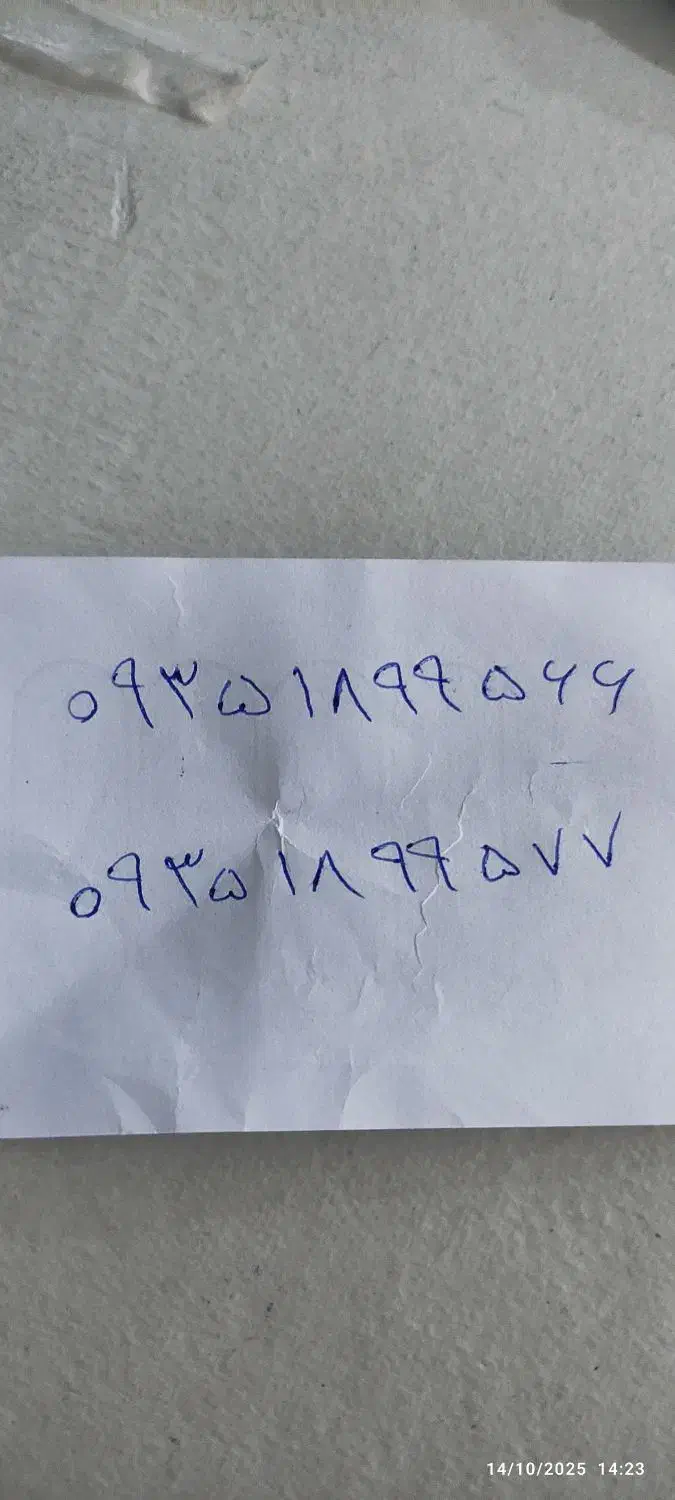 ۰۹۳۵۱۸۹۹۵۶۶
۰۹۳۵۱۸۹۹۵۷۷
14/10/2025 14:23